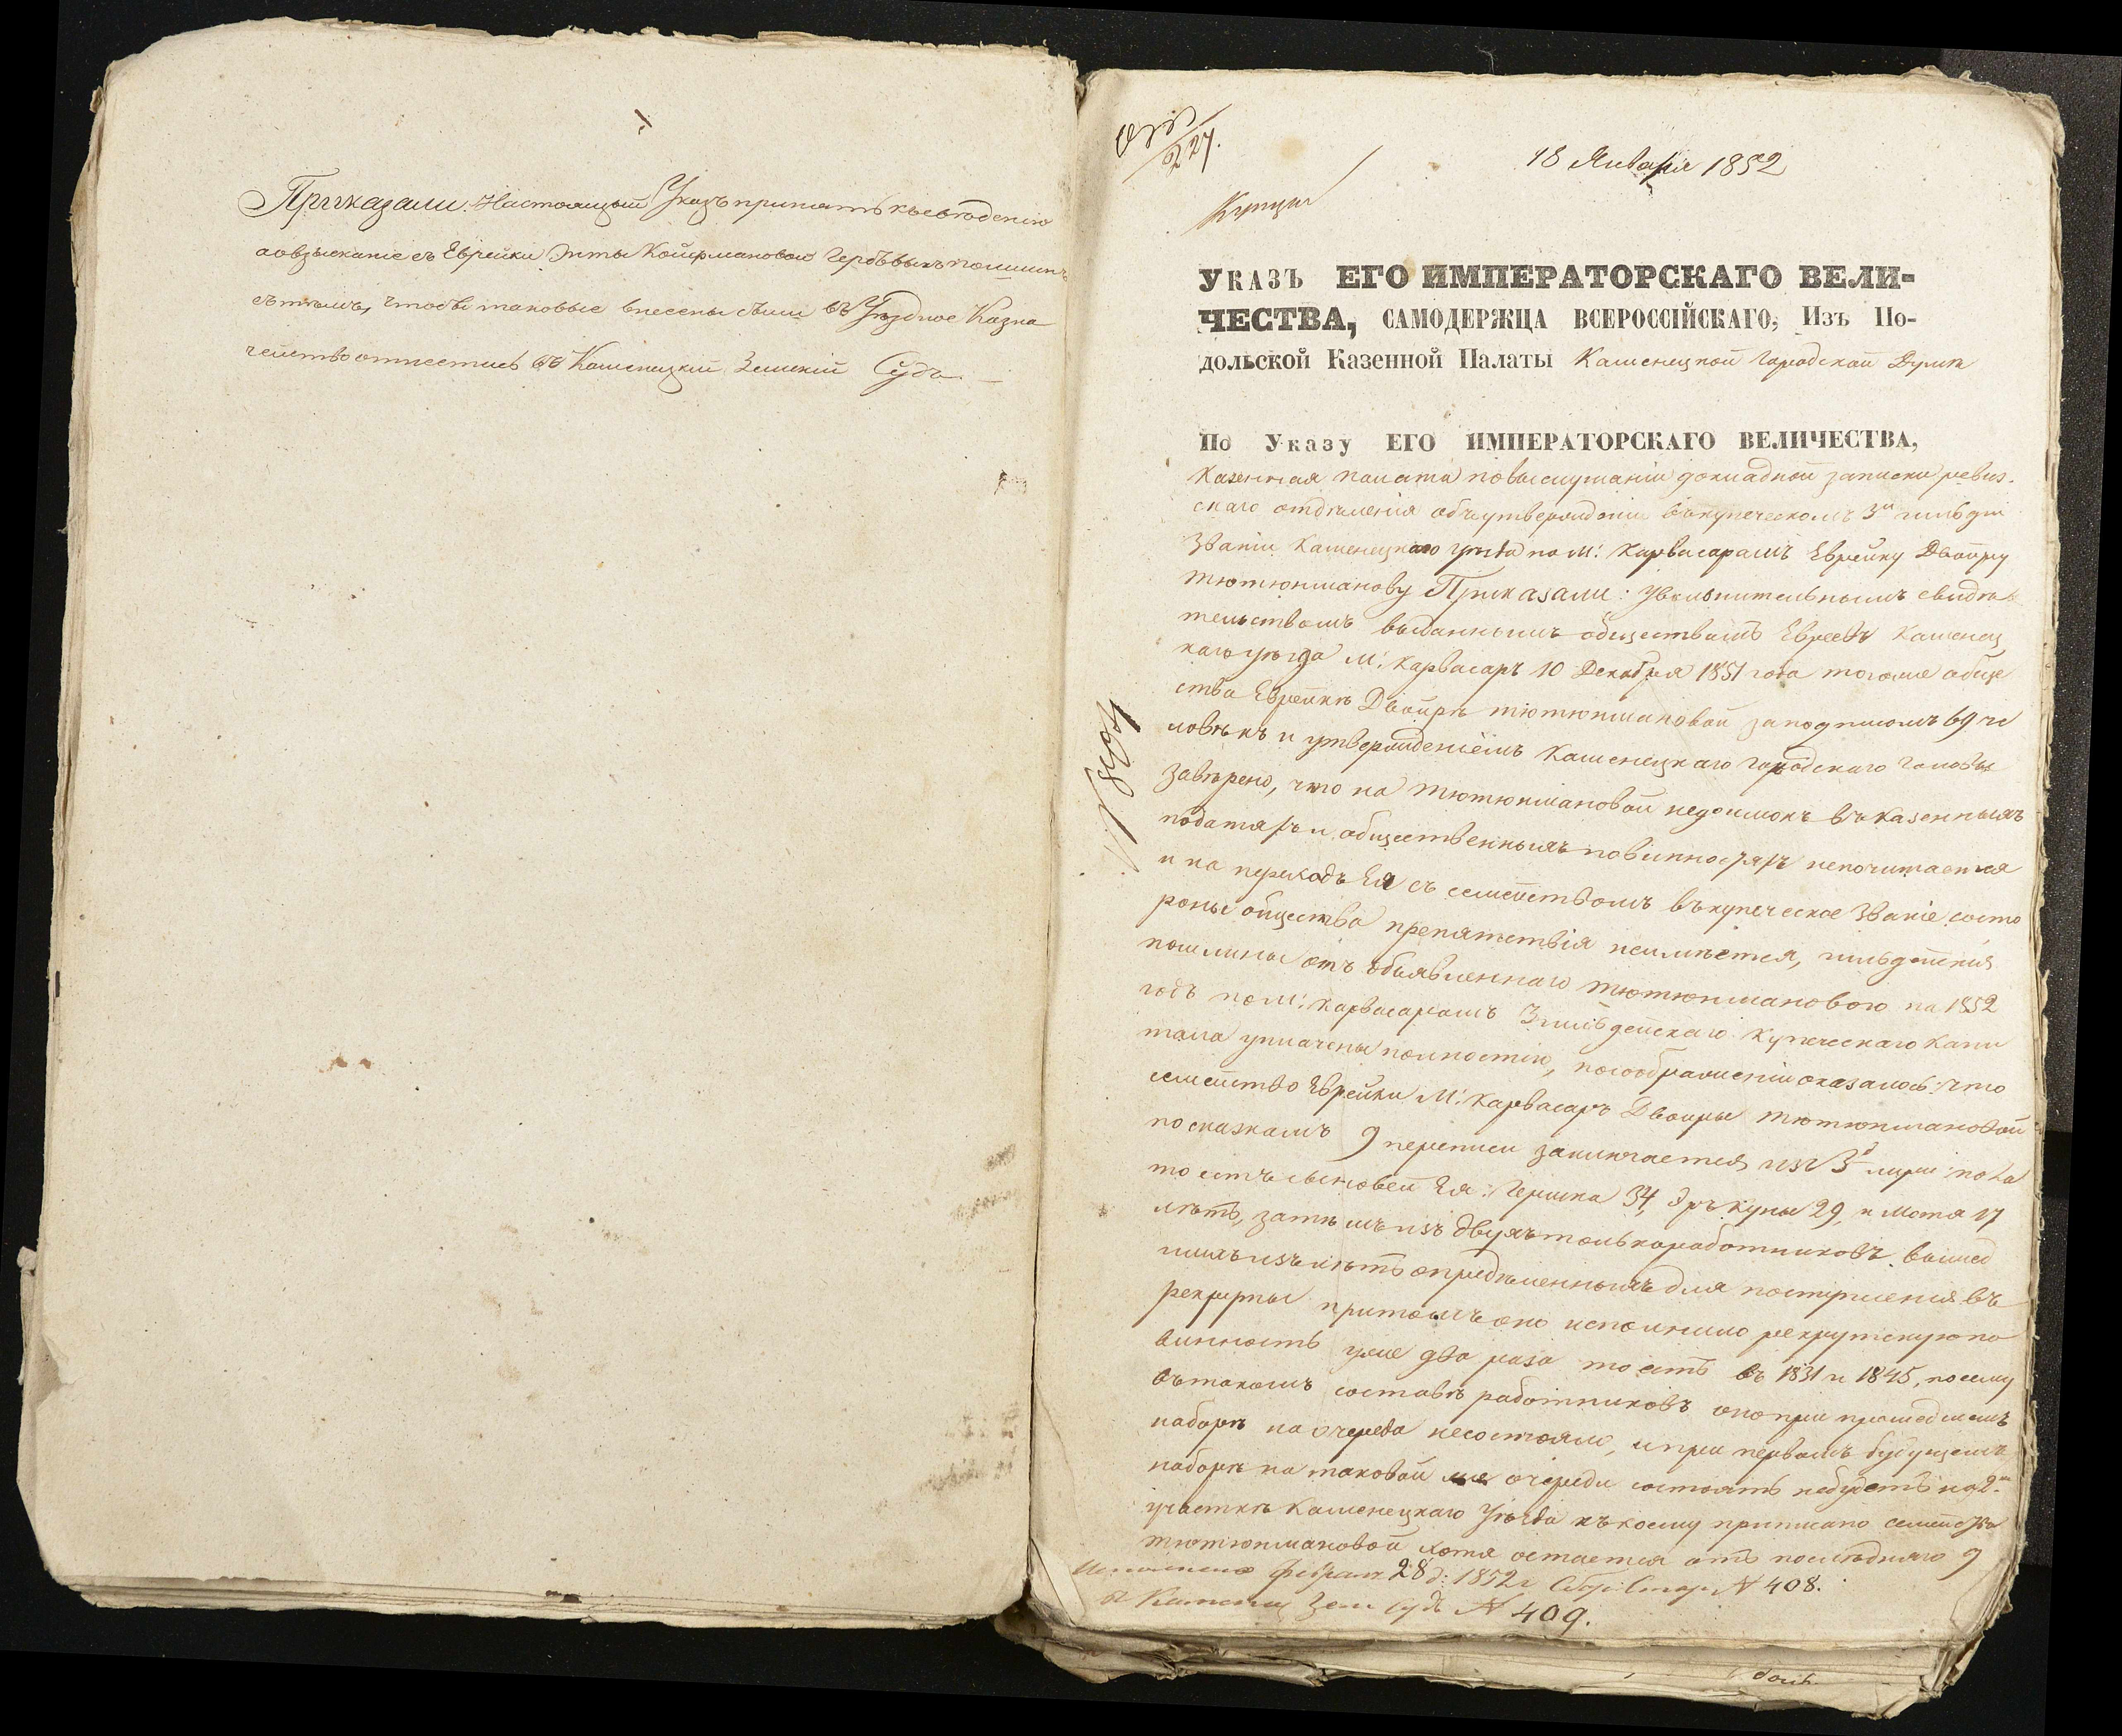 Приказали. Настоящый Указъ принять къ свѣденію
а о взысканіе съ Еврейки Энты Койфмановой Гербовыхъ пошлинъ
съ тѣмъ, чтобы таковые внесены были въ Уѣздное Казна
чейство отнестись въ Каменецкій Земскій Судъ
227.
18 Января 1852
Купцы
Указъ ЕГО ИМПЕРАТОРСКАГО ВЕЛИ-
ЧЕСТВА, САМОДЕРЖЦА ВСЕРОССІЙСКАГО, Изъ По-
дольской Казенной Палаты Каменецкой Городской Думѣ
По Указу ЕГО ИМПЕРАТОРСКАГО ВЕЛИЧЕСТВА,
Казенная палата по выслушаніи докладной записки ревиз.
скаго отдѣленія объ утвержденіи въ купеческомъ 3й гильдіи
званіи Каменецкаго уѣзда по м: Карвасарамъ Еврейку Двойру
Тютюнманову Приказали: увольнительнымъ свидѣ
тельствомъ выданнымъ обществомъ Евреевъ Каменец
каго уѣзда м: Карвасаръ 10 Декабря 1851 года тогоже обще
ства Еврейкѣ Двойрѣ Тютюнмановой за подписомъ 69 че
ловѣкъ и утвержденіемъ Каменецкаго Городскаго Головы
завѣрено, что на Тютюнмановой недоимокъ въ казенныхъ
податяхъ и общественныхъ повинностяхъ непочитается
и на переходъ Ея съ семействомъ въ купеческое званіе со сто
роны общества препятствія неимѣется, гильдейскія
пошлины отъ объявленнаго Тютюнмановою на 1852
годъ по м: Карвасарамъ 3 гильдейскаго купеческаго капи
тала уплачены полностію, по соображеніи оказалось: что
семейство Еврейки м: Карвасаръ Двойры Тютюнмановой
по сказкамъ 9 переписи заключается изъ 3х лицъ пола
то есть сыновей Ея: Гершка 34, Эръ Куны 29, и Мотя 17
лѣтъ, затѣмъ изъ двухъ только работниковъ вышед
шихъ изъ лѣтъ опредѣленныхъ для поступленія въ
рекруты притомъ оно исполнило рекрутскую по
винность уже два раза то есть въ 1831 и 1845, посему
въ такомъ составѣ работниковъ оно при прошедшемъ
наборѣ на очереди несостояло, и при первомъ будущемъ
наборѣ на таковой же очереди состоять небудетъ на 2м
участкѣ Каменецкаго Уѣзда къ коему приписано семейство
Тютюнмановой хотя остается отъ послѣдняго 9
Исполнено Февраля 28 д: 1852 г № 408.
В Каменец Зем Судъ № 409.